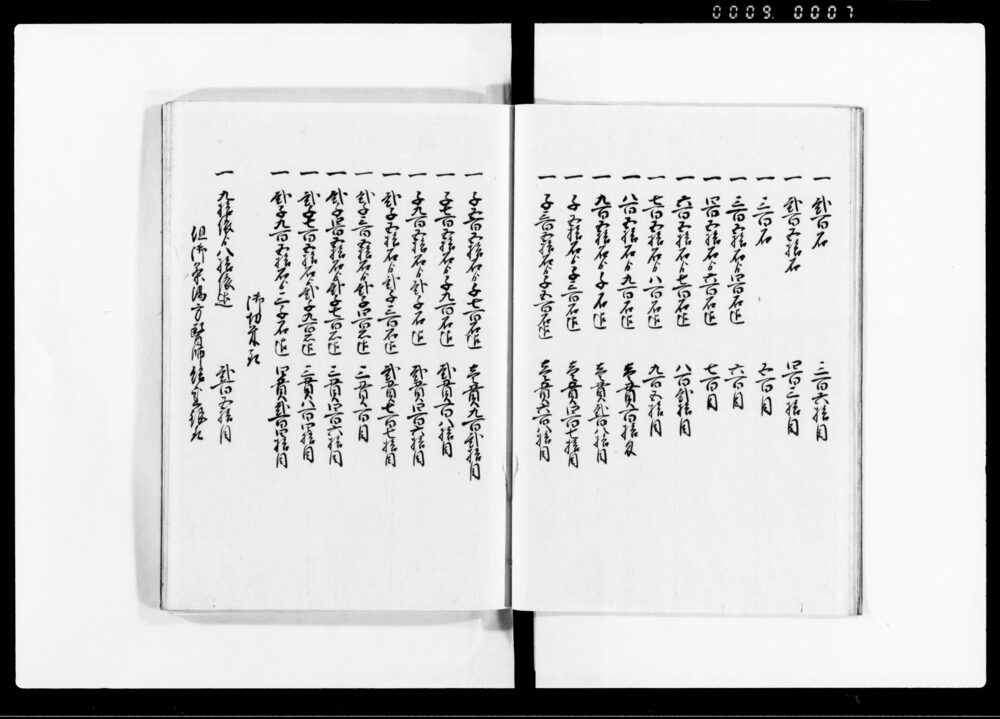 0009. 0007
一 弐百石 三百六拾目
一 弐百五拾石 四百三拾目
一 三百石 五百目
一 三百五拾石ゟ四百石迄 六百目
一 四百五拾石ゟ六百石迄 七百目
一 六百五拾石ゟ七百石迄 八百弐拾目
一 七百五拾石ゟ八百石迄 九百五拾目
一 八百五拾石ゟ九百石迄
一 九百五拾石ゟ千石迄 壱貫弐百八拾目
一 千五拾石ゟ千三百石迄 壱貫四百七拾目
一 千三百五拾石ゟ千五百石迄 壱貫六百八拾目
一 千五百五拾石ゟ千七百石迄 壱貫九百弐拾目
一 千七百五拾石ゟ千九百石迄 弐貫百八拾目
一 千九百五拾石ゟ弐千石迄 弐貫四百六拾目
一 弐千五拾石ゟ弐千三百石迄 弐貫七百七拾目
一 弐千三百五拾石ゟ弐千四百石迄 三貫百目
一 弐千四百五拾石ゟ弐千七百石迄 三貫四百六拾目
一 弐千七百五拾石ゟ弐千九百石迄 三貫八百四拾目
一 弐千九百五拾石ゟ三千石迄 四貫弐百四拾目
御切米
一 九拾俵ゟ八拾俵迄 弐百五拾目
但御